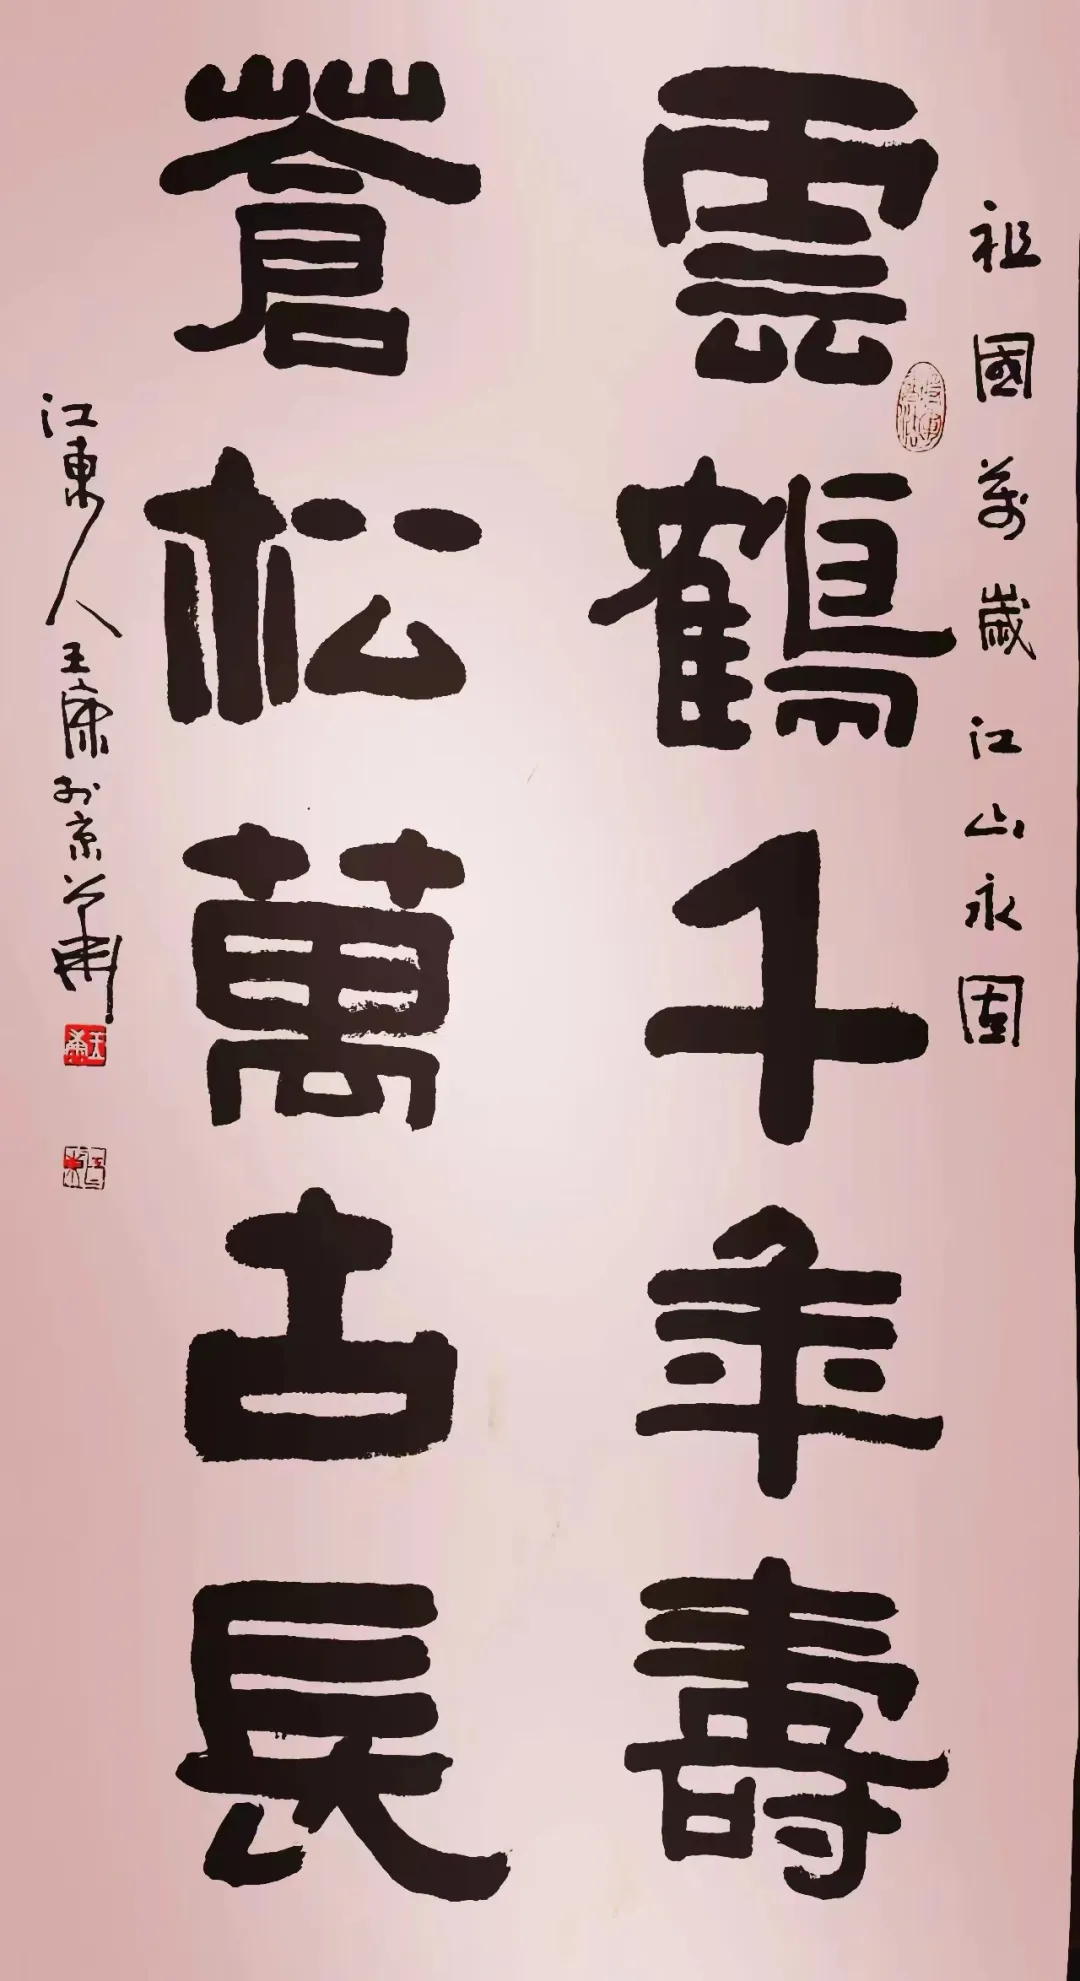 祖國萬歲江山永固
雲鶴千年壽
蒼松萬古長
江東人王康於京